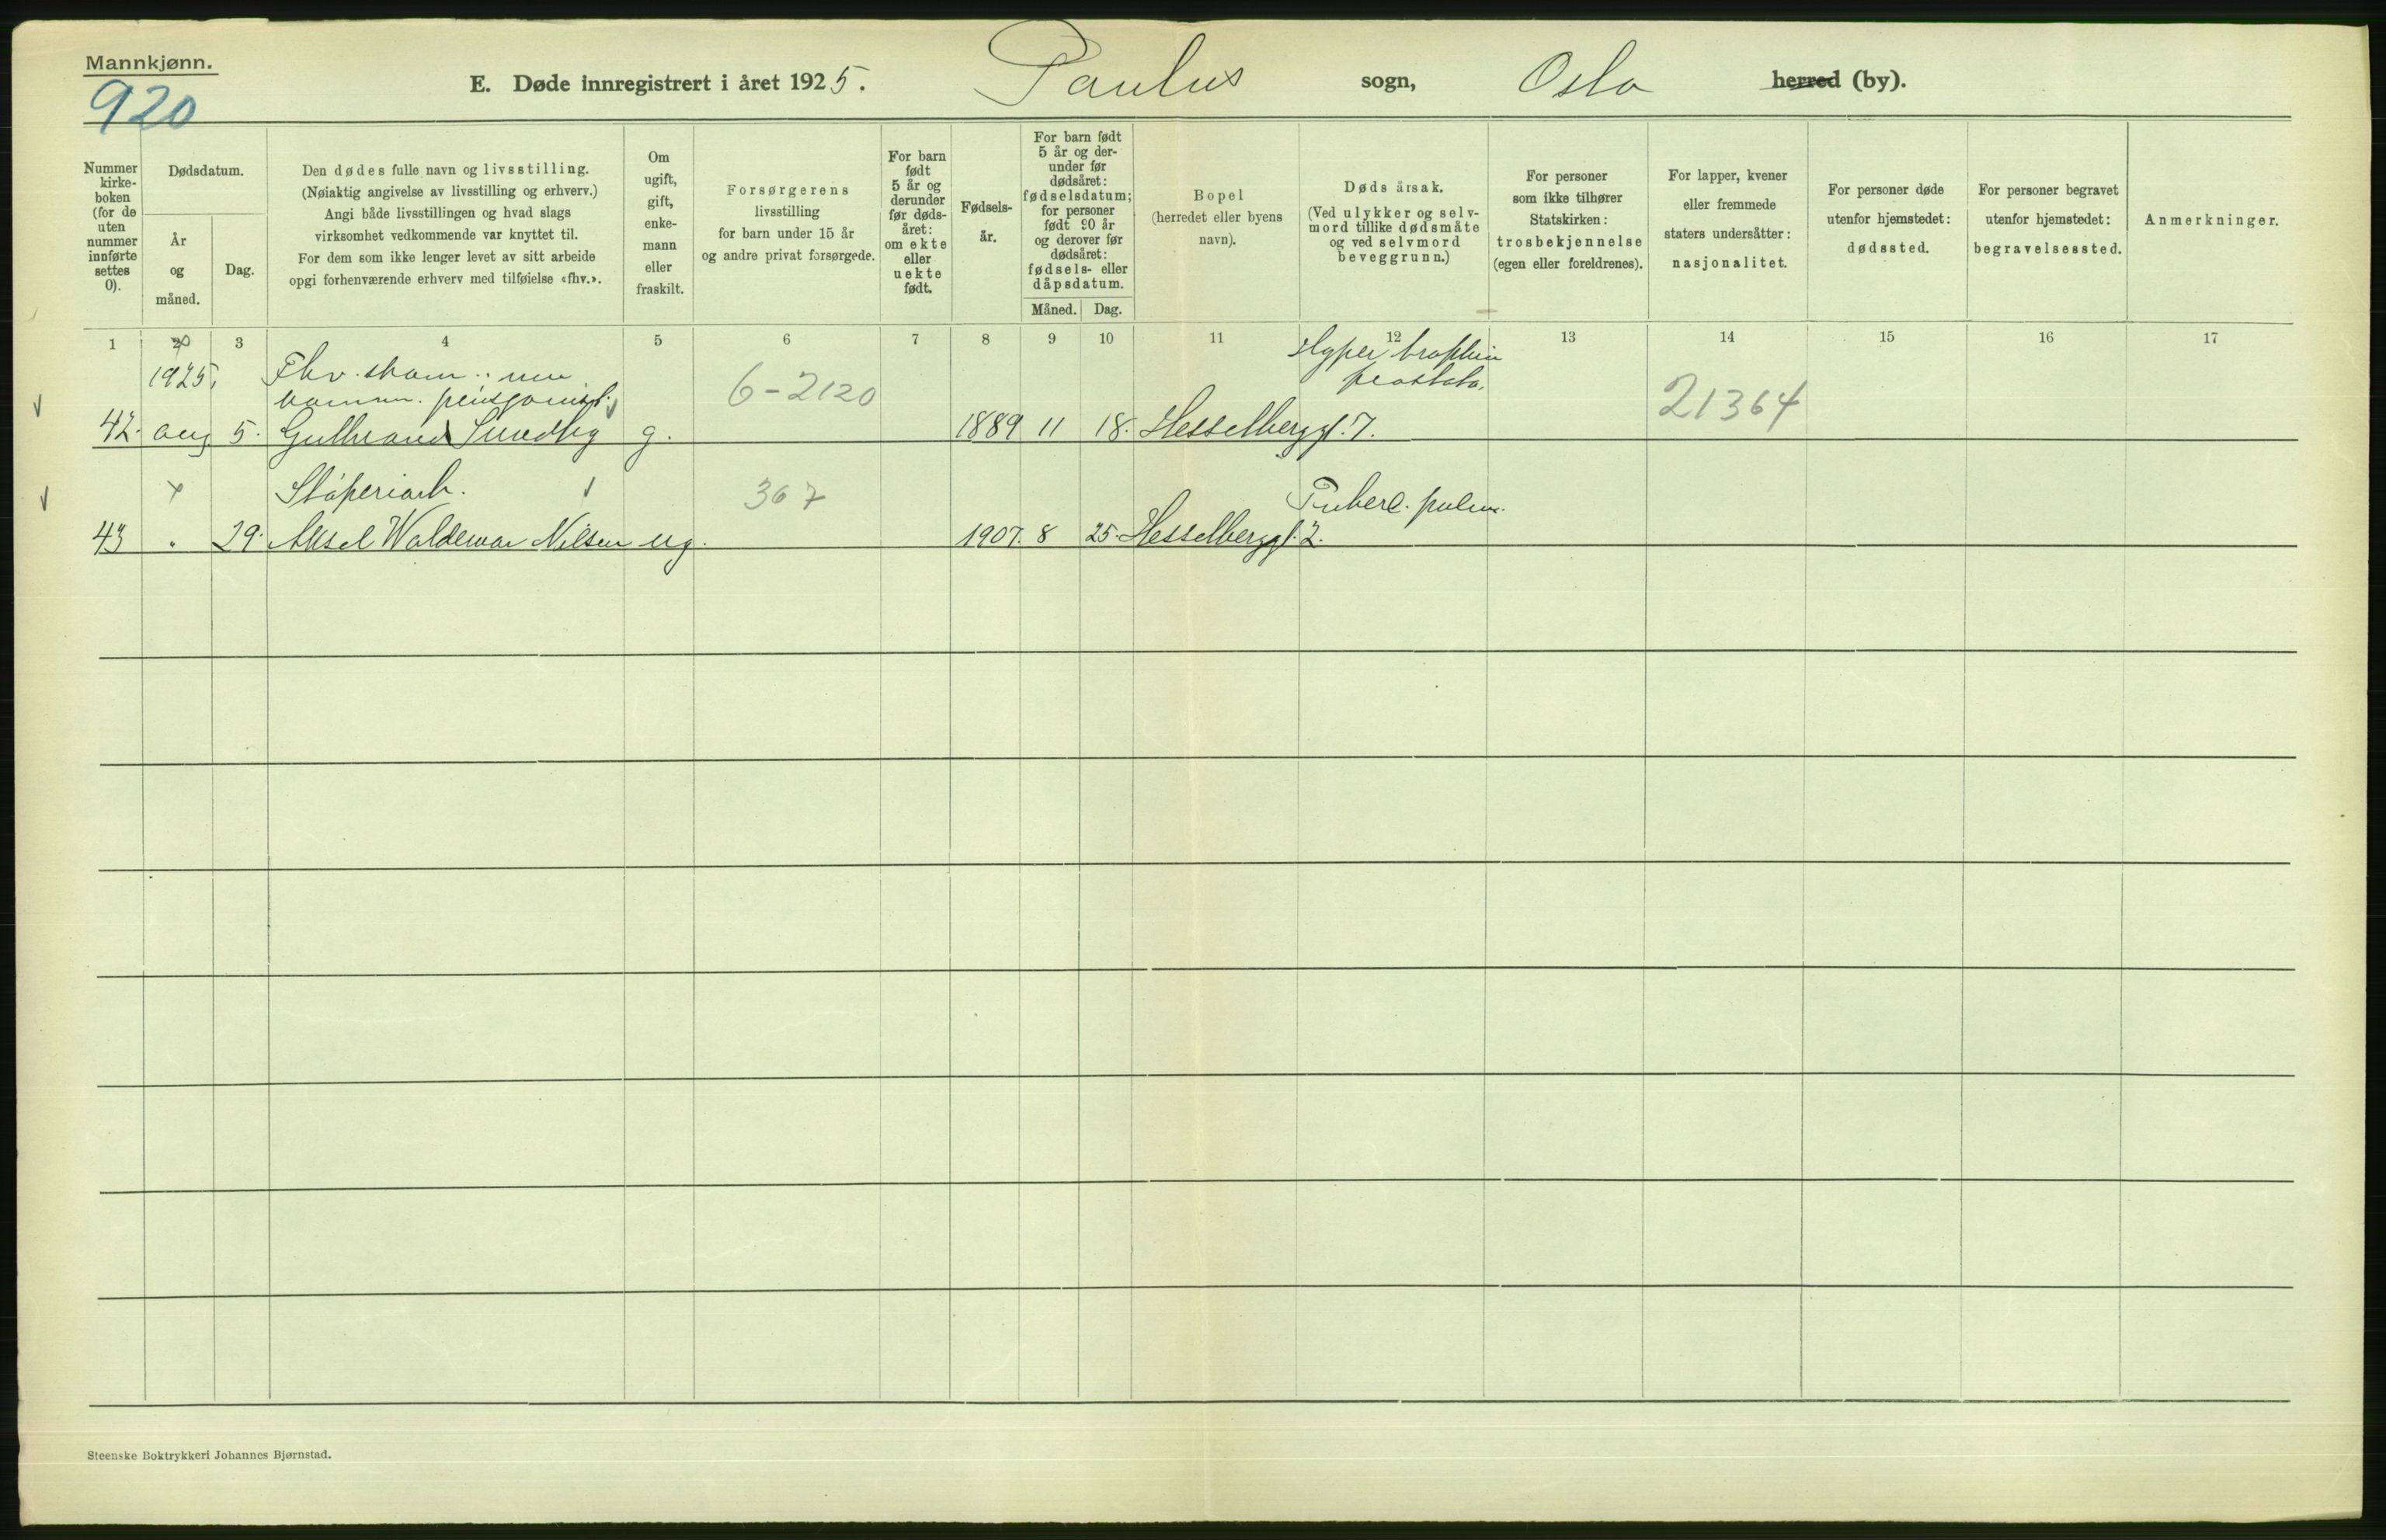 Mannkjønn.
920
E. Døde innregistrert i året 1925. Paulus sogn, Oslo herred (by).
Nummer
kirke-
boken
(for de
uten
nummer
innførte
settes
0).
Dødsdatum.
År
og
måned.
Dag.
Den dødes fulle navn og livsstilling.
(Nøiaktig angivelse av livsstilling og erhverv.)
Angi både livsstillingen og hvad slags
virksomhet vedkommende var knyttet til.
For dem som ikke lenger levet av sitt arbeide
opgi forhenværende erhverv med tilføielse «fhv.».
Om
ugift,
gift,
enke-
mann
eller
fraskilt.
Forsørgerens
livsstilling
for barn under 15 år
og andre privat forsørgede.
For barn
født
5 år og
derunder
før døds-
året:
om ekte
eller
uekte
født.
Fødsels-
år.
For barn født
5 år og der-
under før
dødsåret:
fødselsdatum;
for personer
født 90 år
og derover før
dødsåret:
fødsels- eller
dåpsdatum.
Måned. Dag.
Bopel
(herredet eller byens
navn).
Dødsårsak.
(Ved ulykker og selv-
mord tillike dødsmåte
og ved selvmord
beveggrunn.)
For personer
som ikke tilhører
Statskirken:
trosbekjennelse
(egen eller foreldrenes).
For lapper, kvener
eller fremmede
staters undersåtter:
nasjonalitet.
For personer døde
utenfor hjemstedet:
dødssted.
For personer begravet
utenfor hjemstedet:
begravelsessted.
Anmerkninger.
1 3 4 5 6 7 8 9 10 11 12 13 14 15 16 17
1925. Fhv. Hyper trophia
komm. pensjonist. 6-2120 prostata. 21364
42. aug 5. Gulbrand Sundby g. 1889 11 18. Hesselberggt. 7.
Støperiarb. 367 Tuberc. pulm.
43 " 29. Aksel Waldemar Nilsen ug. 1907. 8 25. Hesselberggt. 2.
Steenske Boktrykkeri Johannes Bjørnstad.